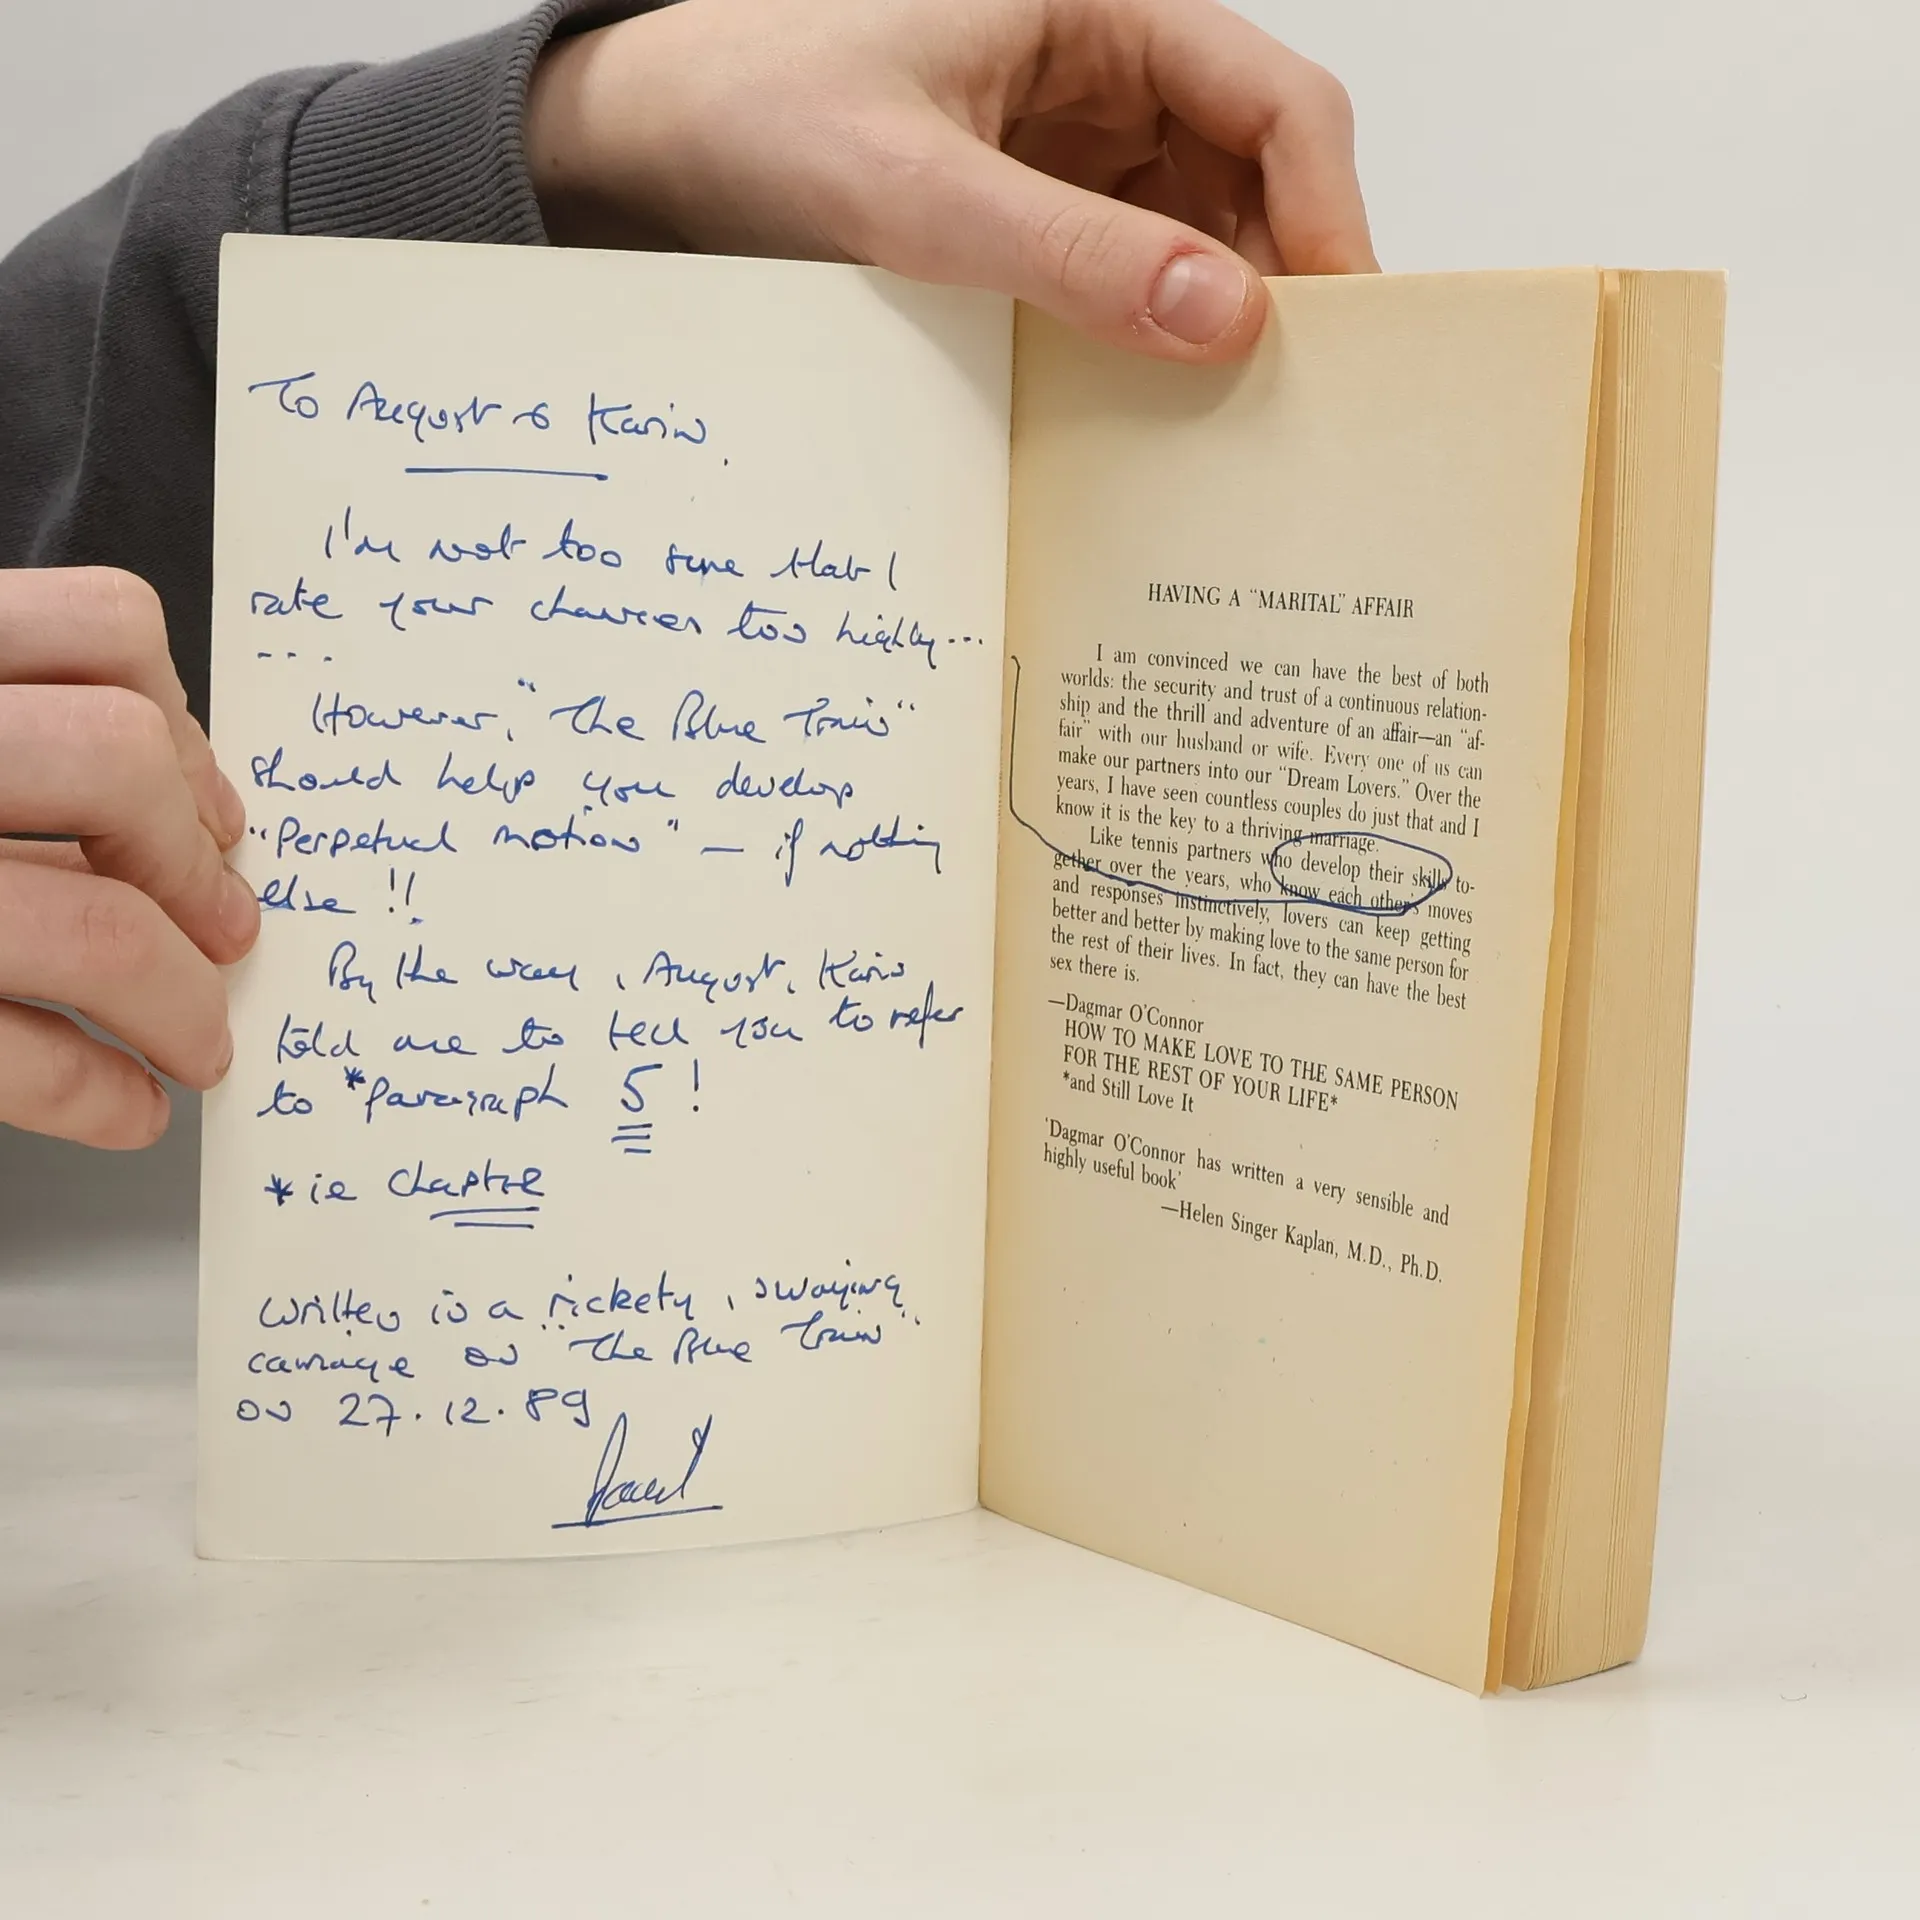 To August & Karin.
I'm not too sure that I
rate your chances too highly...
...
However, "The Blue Train"
should help you develop
"Perpetual motion" — if nothing
else !!
By the way, August, Karin
told me to tell you to refer
to *Paragraph 5 !
* ie Chapter
Written in a rickety, swaying
carriage on "The Blue Train"
on 27.12.89
HAVING A “MARITAL” AFFAIR
I am convinced we can have the best of both
worlds: the security and trust of a continuous relation-
ship and the thrill and adventure of an affair—an “af-
fair” with our husband or wife. Every one of us can
make our partners into our “Dream Lovers.” Over the
years, I have seen countless couples do just that and I
know it is the key to a thriving marriage.
Like tennis partners who develop their skills to-
gether over the years, who know each other's moves
and responses instinctively, lovers can keep getting
better and better by making love to the same person for
the rest of their lives. In fact, they can have the best
sex there is.
—Dagmar O'Connor
HOW TO MAKE LOVE TO THE SAME PERSON
FOR THE REST OF YOUR LIFE*
*and Still Love It
'Dagmar O'Connor has written a very sensible and
highly useful book'
—Helen Singer Kaplan, M.D., Ph.D.